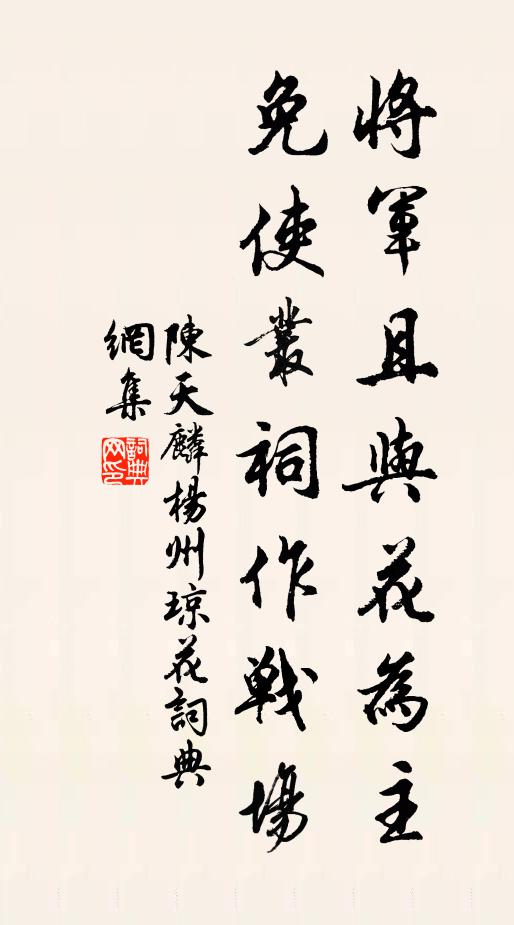 將軍且與花為主
免使叢祠作戰場
陳天麟楊州琼花詞典
網集
詞典網印